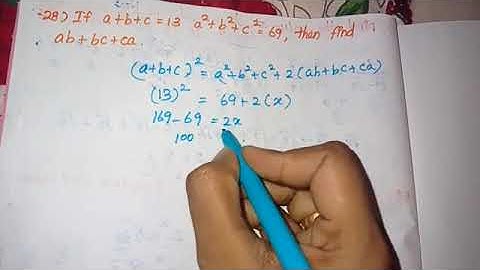 28) If a+b+c=13 a²+b²+c²=69, then find
ab+bc+ca.
(a+b+c)² = a²+b²+c²+2(ab+bc+ca)
(13)² = 69+2(x)
169-69 = 2x
100